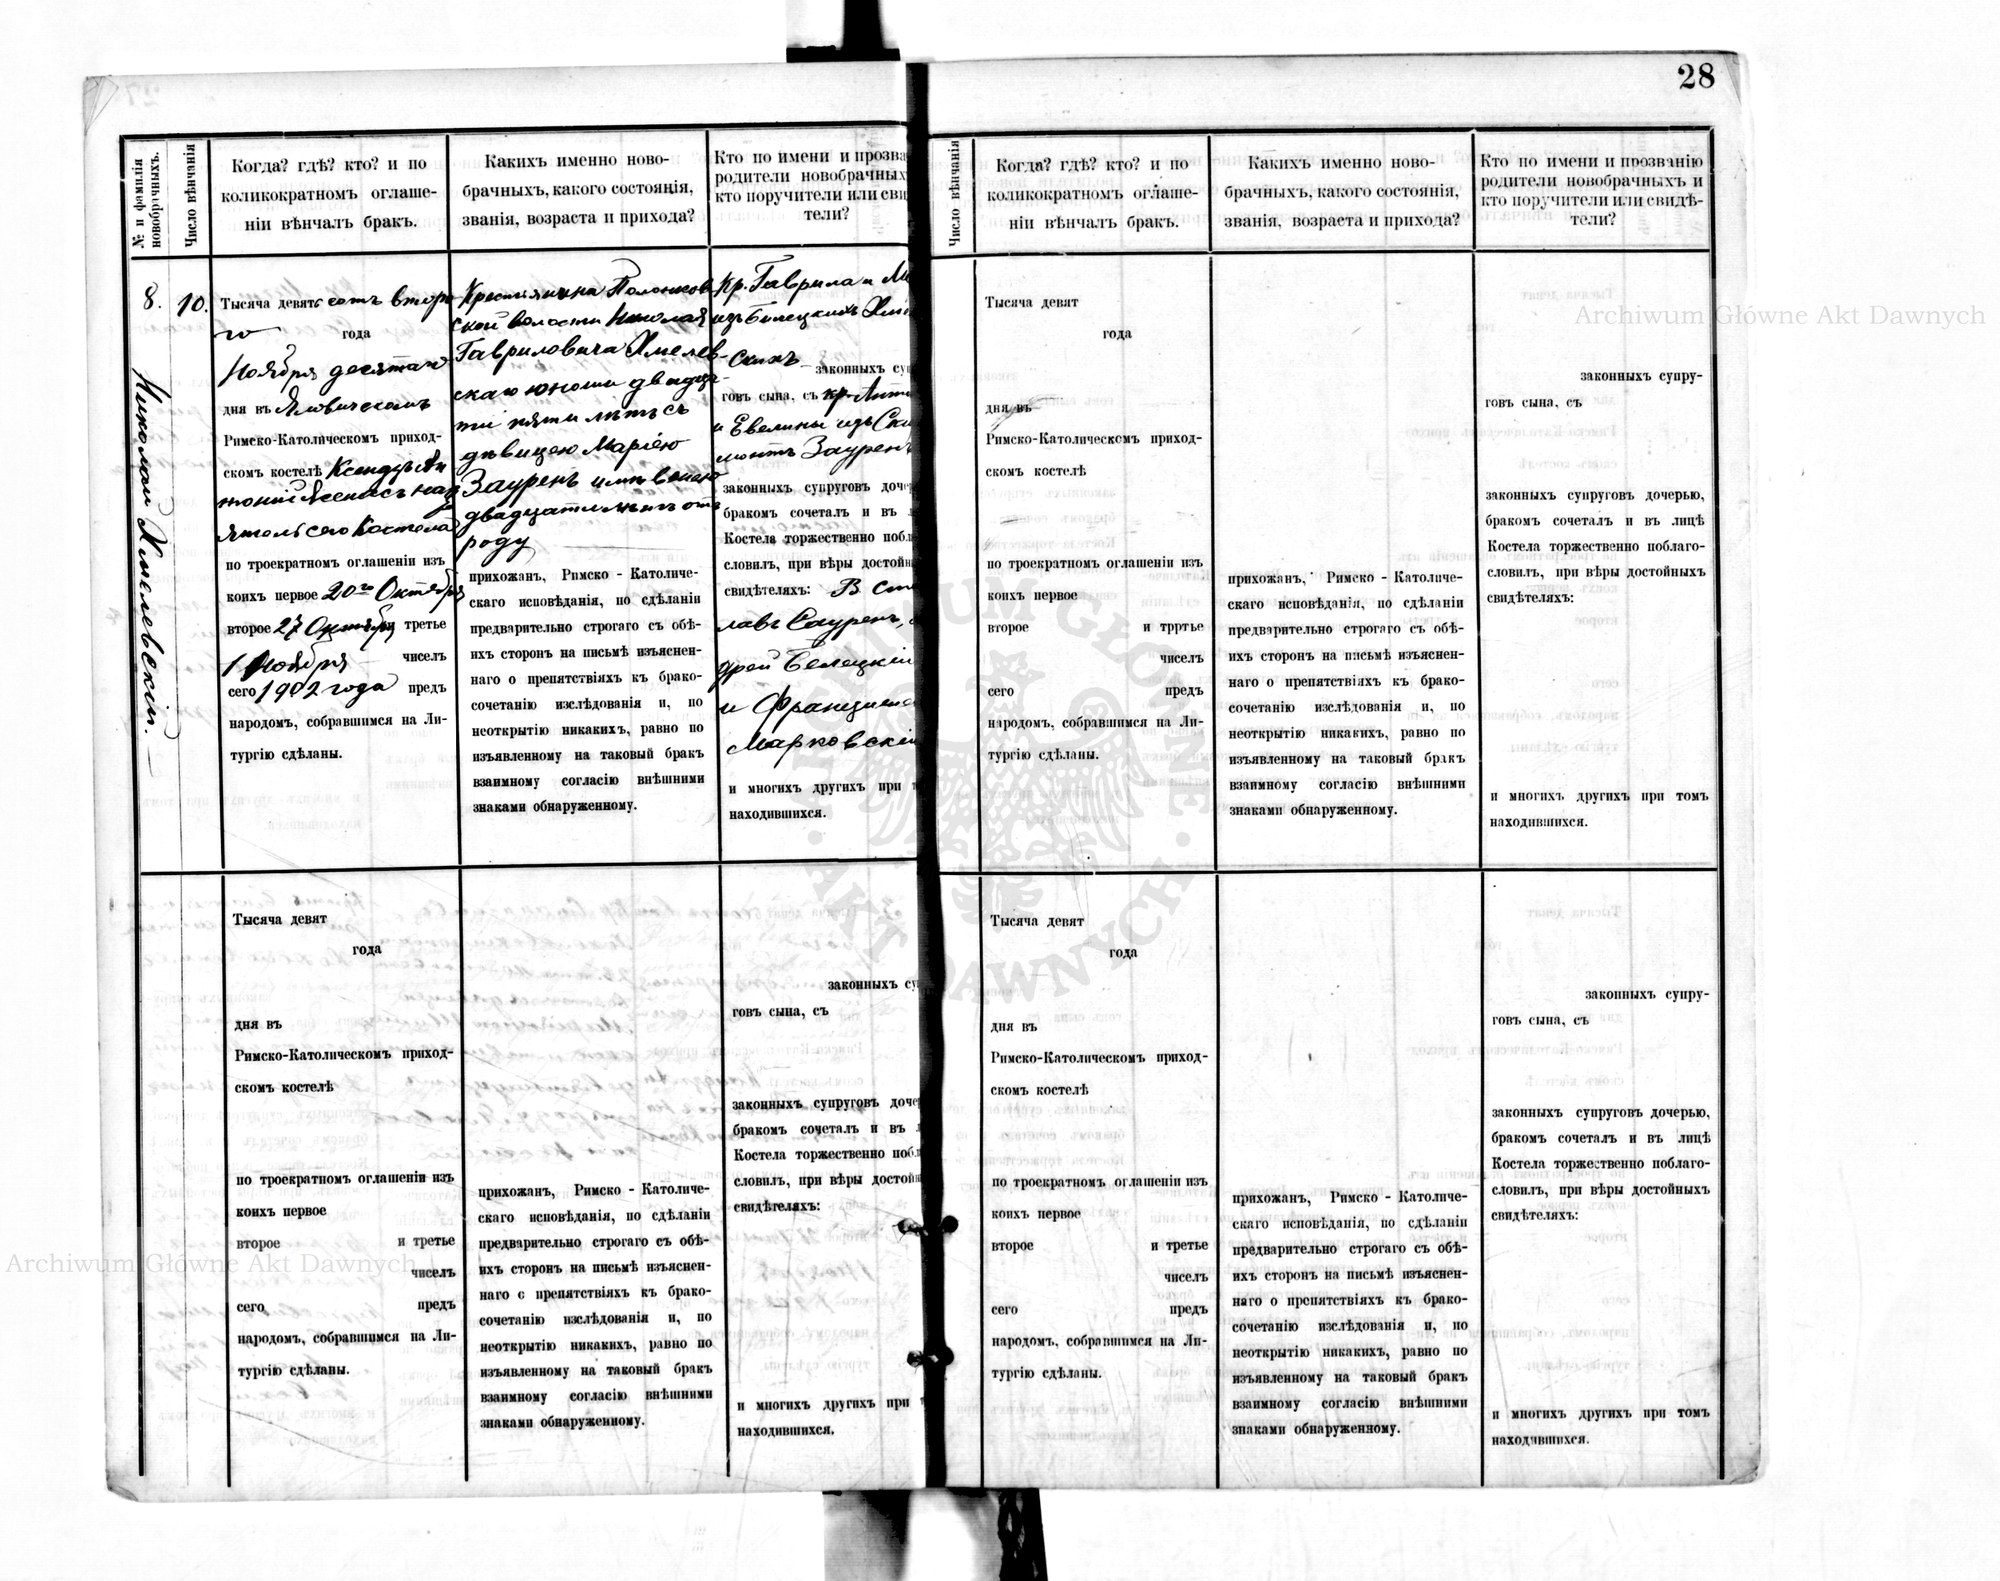 28
№ и фамилія новобрачныхъ.
Число вѣнчанія
Когда? гдѣ? кто? и по
коликократномъ оглаше-
ніи вѣнчалъ бракъ.
Какихъ именно ново-
брачныхъ, какого состоянія,
званія, возраста и прихода?
Кто по имени и прозва
родители новобрачных
кто поручители или сви
тели?
8.
Николай Хмелевскій.
10.
Тысяча девятьсотъ второ
го года
Ноября десятаго
дня въ Яловичскомъ
Римско-Католическомъ приход-
скомъ костелѣ Ксендзъ Ан
тоній
сего Костела
по троекратномъ оглашеніи изъ
коихъ первое 20го Октября
второе 27 Октября и третье
1 Ноября чиселъ
сего 1902 года предъ
народомъ, собравшимся на Ли-
тургію сдѣланы.
Крестьянина
ской волости Николая
Гавриловича Хмелев-
скаго юношу двадца
ти пяти лѣтъ съ
дѣвицею Маріею
Зауренъ имѣвшею
двадцать лѣтъ отъ
роду
прихожан, Римско - Католиче-
скаго исповѣданія, по сдѣланіи
предварительно строгаго съ обѣ-
ихъ сторонъ на письмѣ изъяснен-
наго о препятствіяхъ къ брако-
сочетанію изслѣдованія и, по
неоткрытію никакихъ, равно по
изъявленному на таковый бракъ
взаимному согласію внѣшними
знаками обнаруженному.
Кр. Гаврила и М
изъ Белецкихъ Хме
скихъ законныхъ су
говъ сына, съ кр. Анто
и Евелины изъ
Зауренъ
законныхъ супруговъ доче
бракомъ сочеталъ и въ л
Костела торжественно побл
словилъ, при вѣры достойн
свидѣтеляхъ: В
лавъ Сауренъ,
дрей Белецкій
и
Марковскій
и многихъ другихъ при т
находившихся.
Тысяча девят
года
дня въ
Римско-Католическомъ приход-
скомъ костелѣ
по троекратномъ оглашеніи изъ
коихъ первое
второе и третье
чиселъ
сего предъ
народомъ, собравшимся на Ли-
тургію сдѣланы.
прихожан, Римско - Католиче-
скаго исповѣданія, по сдѣланіи
предварительно строгаго съ обѣ-
ихъ сторонъ на письмѣ изъяснен-
наго о препятствіяхъ къ брако-
сочетанію изслѣдованія и, по
неоткрытію никакихъ, равно по
изъявленному на таковый бракъ
взаимному согласію внѣшними
знаками обнаруженному.
законныхъ су
говъ сына, съ
законныхъ супруговъ доче
бракомъ сочеталъ и въ
Костела торжественно побл
словилъ, при вѣры достой
свидѣтеляхъ:
и многихъ другихъ при т
находившихся.
Число вѣнчанія
Когда? гдѣ? кто? и по
коликократномъ оглаше-
ніи вѣнчалъ бракъ.
Какихъ именно ново-
брачныхъ, какого состоянія,
званія, возраста и прихода?
Кто по имени и прозванію
родители новобрачныхъ и
кто поручители или свидѣ-
тели?
Тысяча девят
года
дня въ
Римско-Католическомъ приход-
скомъ костелѣ
по троекратномъ оглашеніи изъ
коихъ первое
второе и трртье
чиселъ
сего предъ
народомъ, собравшимся на Ли-
тургію сдѣланы.
прихожан, Римско - Католиче-
скаго исповѣданія, по сдѣланіи
предварительно строгаго съ обѣ-
ихъ сторонъ на письмѣ изъяснен-
наго о препятствіяхъ къ брако-
сочетанію изслѣдованія и, по
неоткрытію никакихъ, равно по
изъявленному на таковый бракъ
взаимному согласію внѣшними
знаками обнаруженному.
законныхъ супру-
говъ сына, съ
законныхъ супруговъ дочерью,
бракомъ сочеталъ и въ лицѣ
Костела торжественно поблаго-
словилъ, при вѣры достойныхъ
свидѣтеляхъ:
и многихъ другихъ при томъ
находившихся.
Тысяча девят
года
дня въ
Римско-Католическомъ приход-
скомъ костелѣ
по троекратномъ оглашеніи изъ
коихъ первое
второе и третье
чиселъ
сего предъ
народомъ, собравшимся на Ли-
тургію сдѣланы.
прихожан, Римско - Католиче-
скаго исповѣданія, по сдѣланіи
предварительно строгаго съ обѣ-
ихъ сторонъ на письмѣ изъяснен-
наго о препятствіяхъ къ брако-
сочетанію изслѣдованія и, по
неоткрытію никакихъ, равно по
изъявленному на таковый бракъ
взаимному согласію внѣшними
знаками обнаруженному.
законныхъ супру-
говъ сына, съ
законныхъ супруговъ дочерью,
бракомъ сочеталъ и въ лицѣ
Костела торжественно поблаго-
словилъ, при вѣры достойныхъ
свидѣтеляхъ:
и многихъ другихъ при томъ
находившихся.
Archiwum Główne Akt Dawnych
Archiwum Główne Akt Dawnych
ARCHIWUM GŁÓWNE · AKT DAWNYCH ·